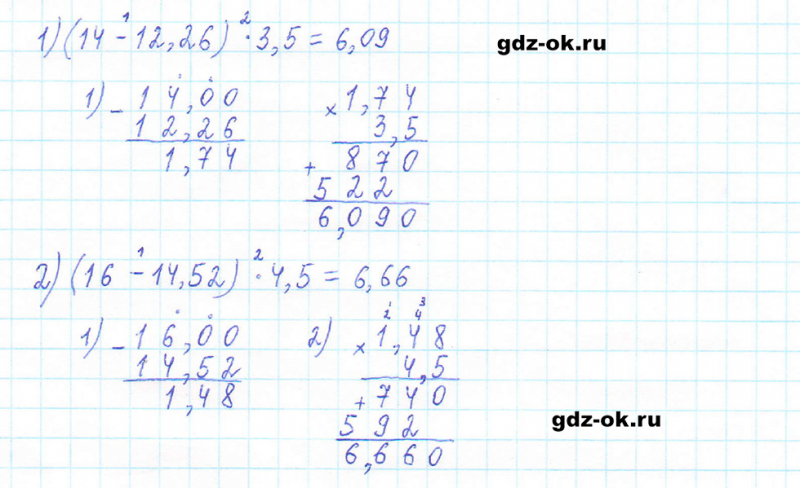 1) (14 - 12,26) · 3,5 = 6,09
1 2
gdz-ok.ru
1) - 14,00
12,26
1,74
× 1,74
3,5
+ 870
522
6,090
2) (16 - 14,52) · 4,5 = 6,66
1 2
1) - 16,00
14,52
1,48
2) × 1,48
1 3
2 4
4,5
+ 740
592
6,660
gdz-ok.ru